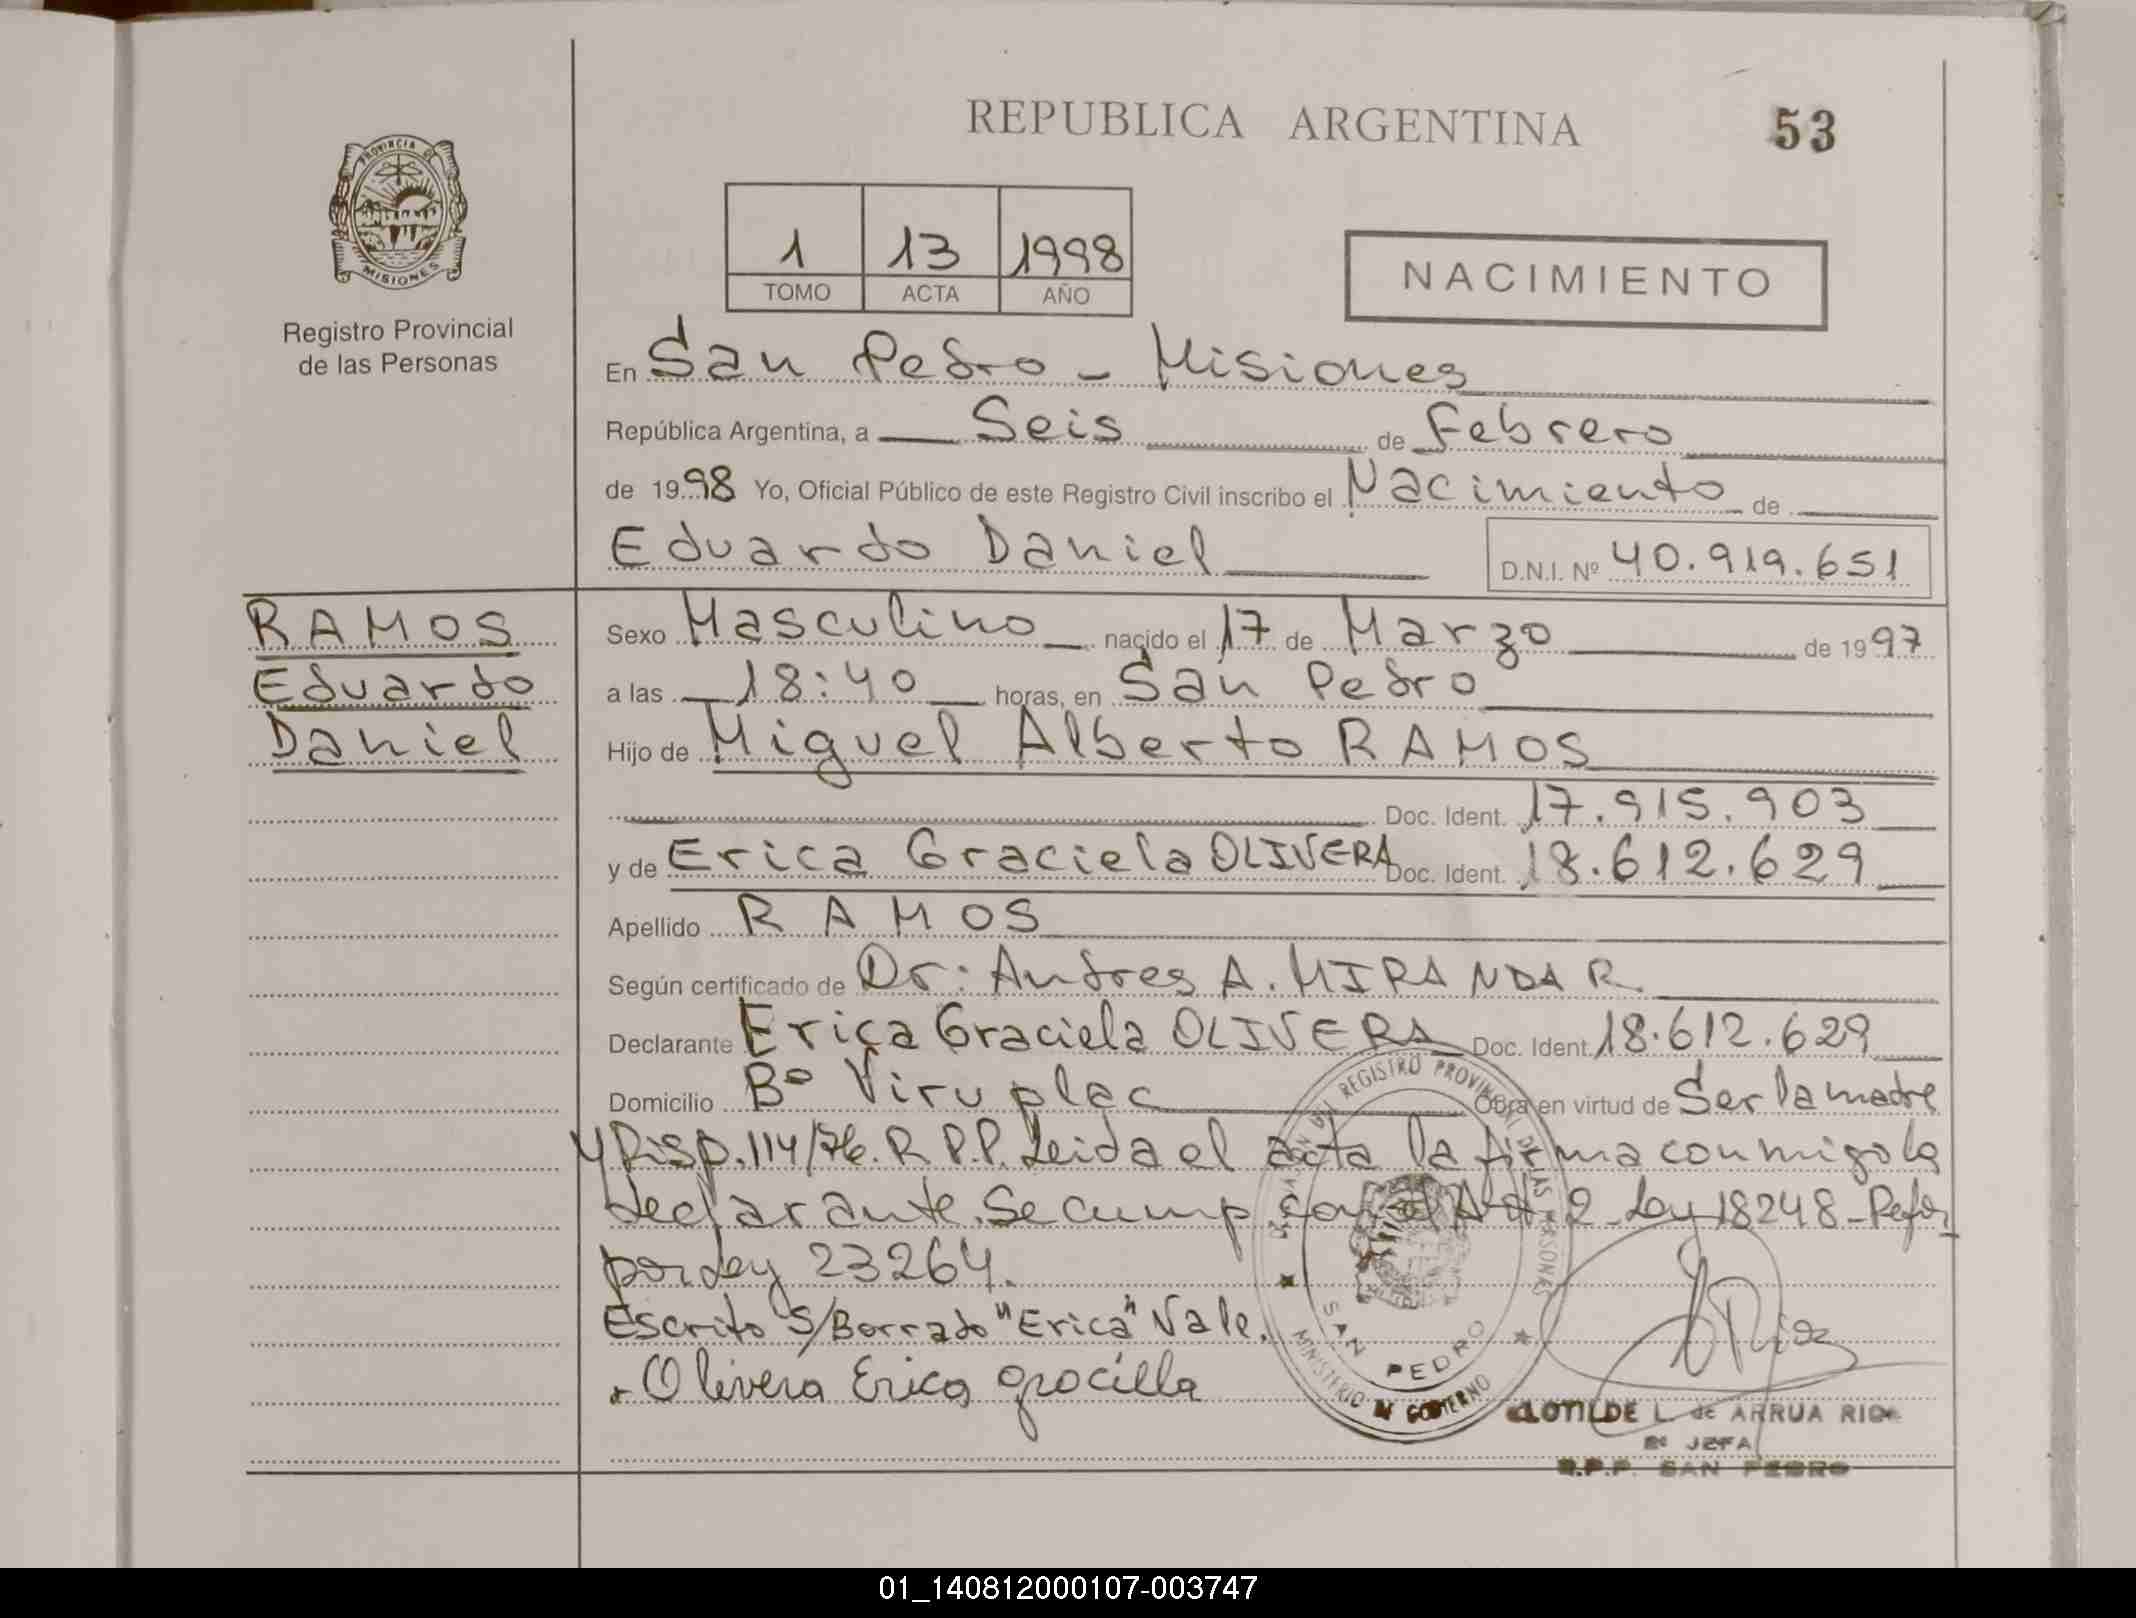 REPUBLICA ARGENTINA
53
PROVINCIA DE
MISIONES
Registro Provincial
de las Personas
1 13 1998
TOMO ACTA AÑO
NACIMIENTO
En San Pedro - Misiones
República Argentina, a Seis de Febrero
de 1998 Yo, Oficial Público de este Registro Civil inscribo el Nacimiento de
Eduardo Daniel D.N.I. Nº 40.919.651
RAMOS
Eduardo
Daniel
Sexo Masculino nacido el 17 de Marzo de 1997
a las 18:40 horas, en San Pedro
Hijo de Miguel Alberto RAMOS
Doc. Ident. 17.915.903
y de Erica Graciela OLIVERA Doc. Ident. 18.612.629
Apellido RAMOS
Según certificado de Dr: Andres A. MIRANDA R.
Declarante Erica Graciela OLIVERA Doc. Ident. 18.612.629
Domicilio Bº Viru plac Obra en virtud de Ser la madre
y Disp. 114/76. R.P.P. Leida el acta la firma conmigo la
declarante. Se cump con el Art 2 Ley 18248 - Refor
por Ley 23264.
Escrito S/Borrado "Erica" Vale.
Olivera Erica grocilla
REGISTRO PROVINCIAL DE LAS PERSONAS
SAN PEDRO
MINISTERIO DE GOBIERNO
CLOTILDE L. de ARRUA RIOS
JEFA
R.P.P. SAN PEDRO
01_140812000107-003747